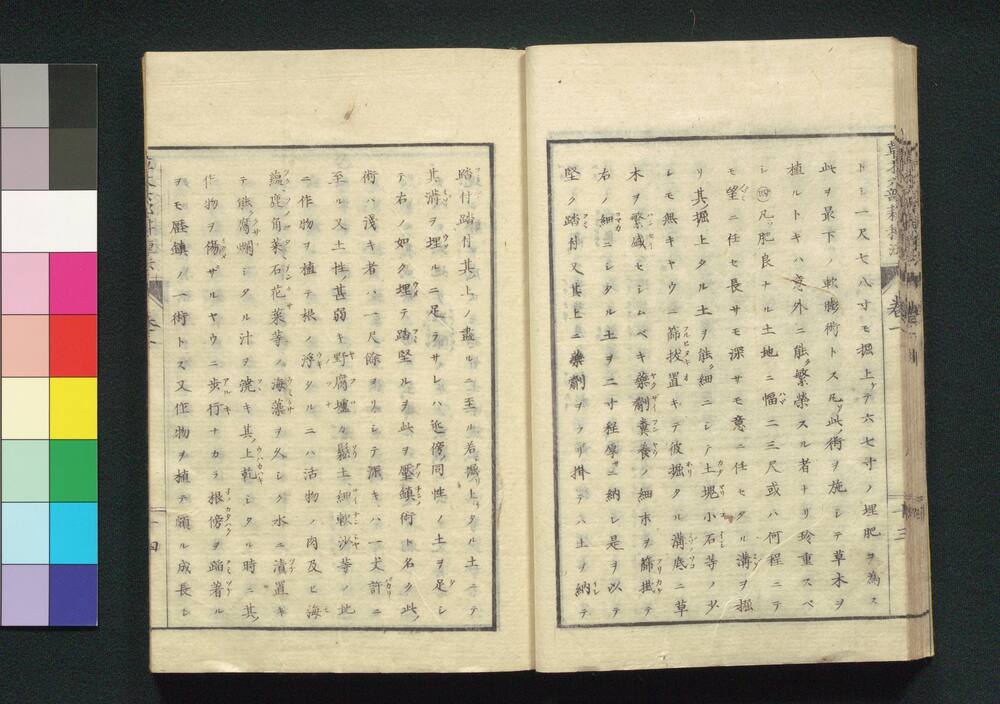 トシ一尺七八寸モ掘上ゲテ六七寸ノ埋肥ヲ為ス
此ヲ最下ノ軟膨術トス凡ソ此ノ術ヲ施シテ草木ヲ
植ルトキハ意外ニ能ク繁榮スル者ナリ珍重スベ
シ㊃凡ソ肥良ナル土地ニ幅二三尺或ハ何程ニテ
モ望ニ任セ長サモ深サモ意ニ任セタル溝ヲ掘
リ其掘上タル土ヲ能ク細ニシテ土塊小石等ノ少
レモ無キヤウニ篩拔置キテ彼掘タル溝底ニ草
木ヲ繁盛セシムベキ藥劑糞養ノ細末ヲ篩掛テ
右ノ細ニシタル土ヲ二寸程厚サニ納レ是ヲ以テ
堅ク踏付又其上ニ藥劑ヲフリ掛テハ土ヲ納テ
踏付踏付其上ノ盡ルニ至ル若掘リ上ゲタル土ニテ
其溝ヲ埋ルニ足ラザレハ近傍同性ノ土ヲ足シ
テ右ノ如ク埋テ踏堅ルヲ此ヲ壓鎮術ト名ク此ノ
術ハ淺キ者ハ一尺餘ヨリシテ深キハ一丈許ニ
至ル又土性ノ甚弱キ野腐壚々鬆土細軟沙等ノ地
ニ作物ヲ植テ根ノ浮タルニハ活物ノ肉及ヒ海
蘿鹿角菜石花菜等ノ海藻ヲ久シク水ニ漬置キ
テ能ク腐爛シタル汁ヲ澆キ其上乾シタル時ニ其ノ
作物ヲ傷ザルヤウニ歩行ナカラ根傍ヲ蹈著ル
ヲモ壓鎮ノ一術トス又作物ヲ植テ頗ル成長シ
卷一
十三
十四